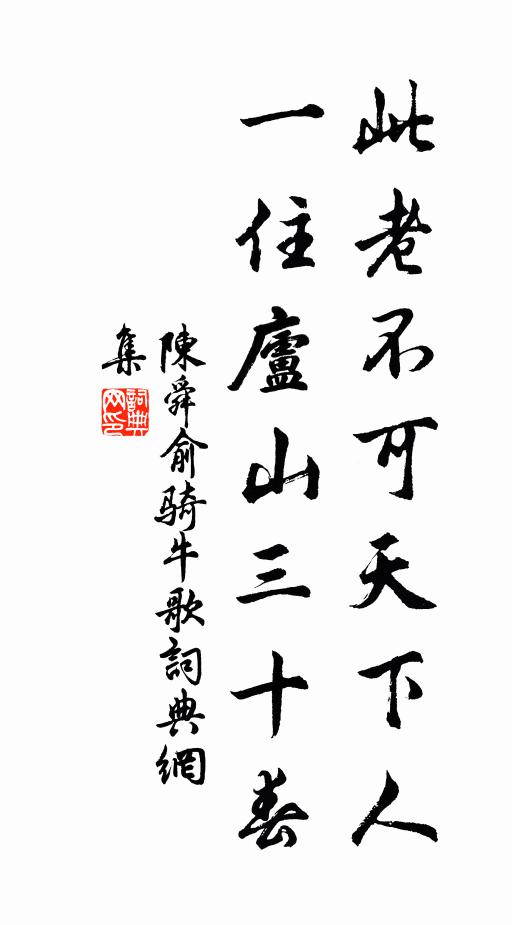 此老不可天下人
一住廬山三十春
陳舜俞騎牛歌詞典網
集
詞典
网印